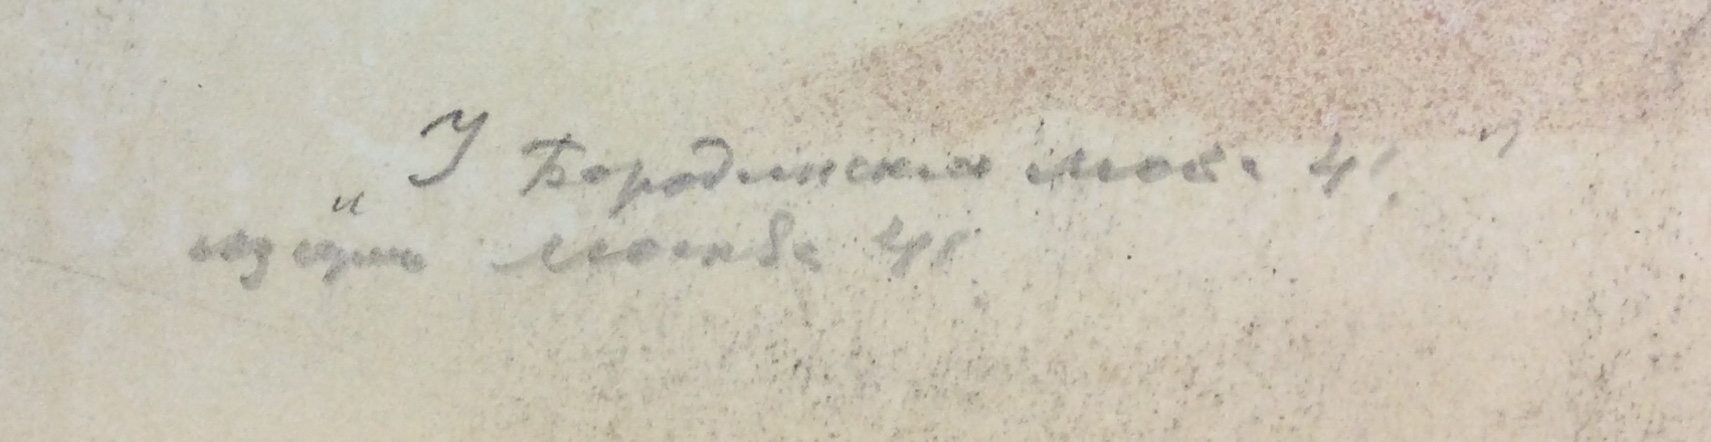 „У Бородинского моста 41"
из серии Москва 41